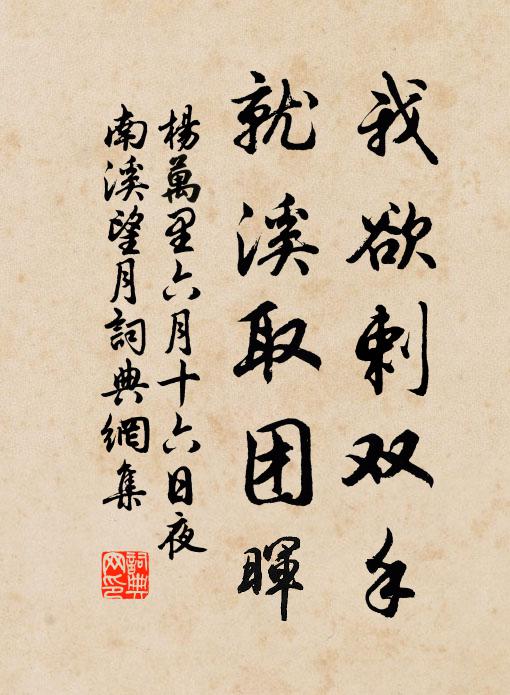 我欲刺双手
就溪取团暉
楊萬里六月十六日夜
南溪望月詞典網集
詞典
网印